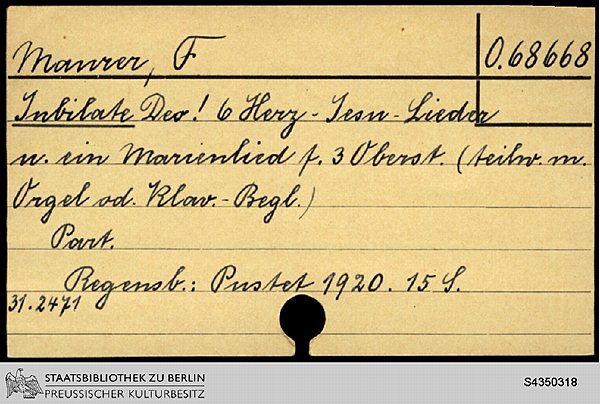 Maurer, F
O.68668
Jubilate Deo! 6 Herz-Jesu-Lieder
u. ein Marienlied f. 3 Oberst. (teilw. m.
Orgel od. Klav.-Begl.)
Part.
Regensb.: Pustet 1920. 15 S.
31.2471
STAATSBIBLIOTHEK ZU BERLIN
PREUSSISCHER KULTURBESITZ
S4350318